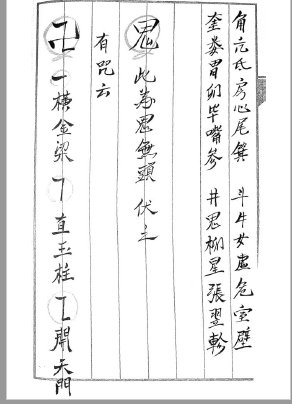 角亢氐房心尾箕 斗牛女虚危室壁
奎婁胃卯毕嘴參 井鬼柳星張翌軫
鬼 此為鬼無頭 伏之
有咒云
卍 一横金梁 ㄱ直玉柱 乙開天門